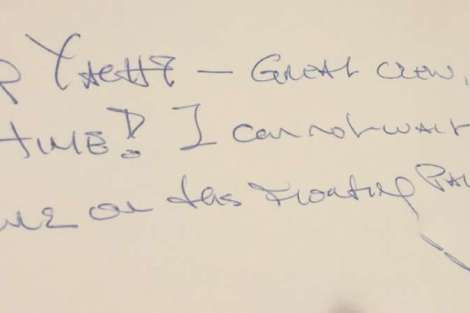 Yacht – Great crew,
time! I cannot wait
on this Floating